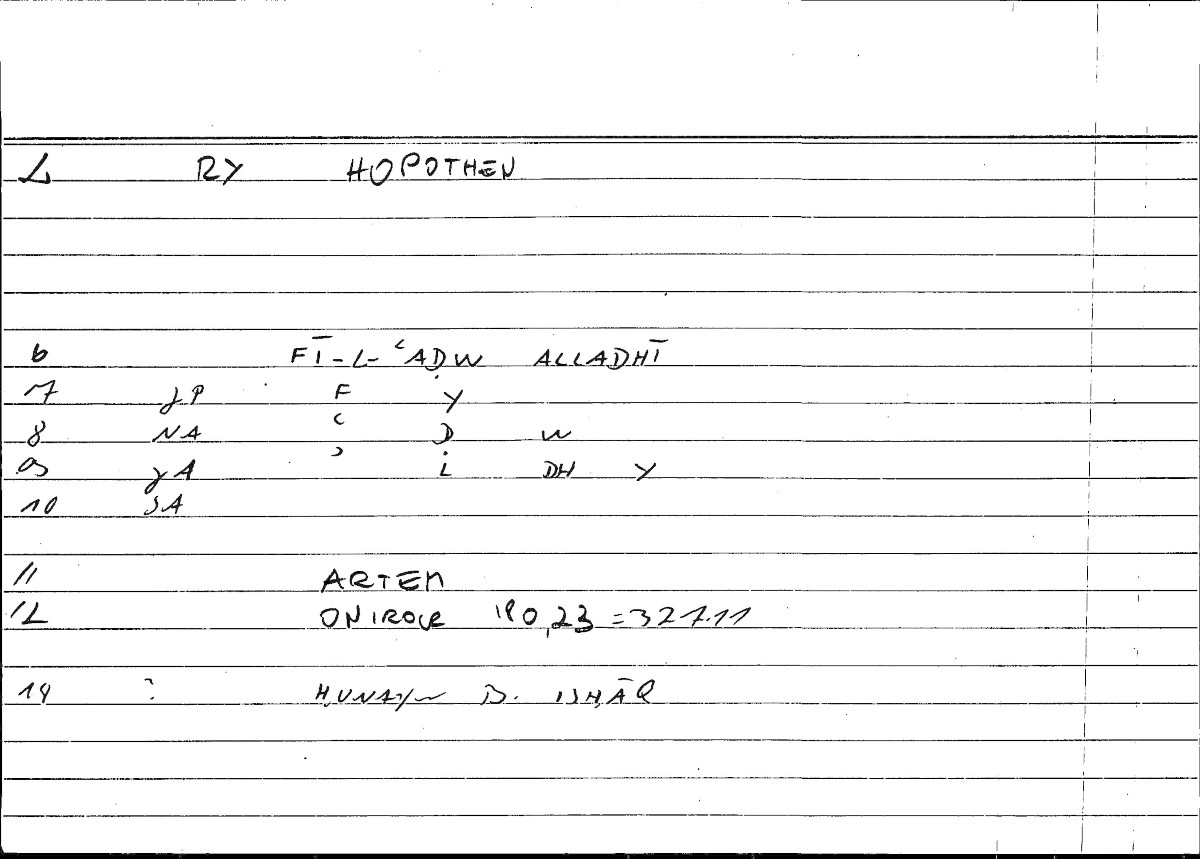 L RY HOPOTHEN
6 FĪ-L-ʿAḌW ALLADHĪ
7 JP F Y
8 NA ʿ Ḍ W
9 JA ʾ L DH Y
10 SA
11 ARTEM
12 ONIROCR 180,23 = 327.11
14 : ḤUNAYN B. ISḤĀQ